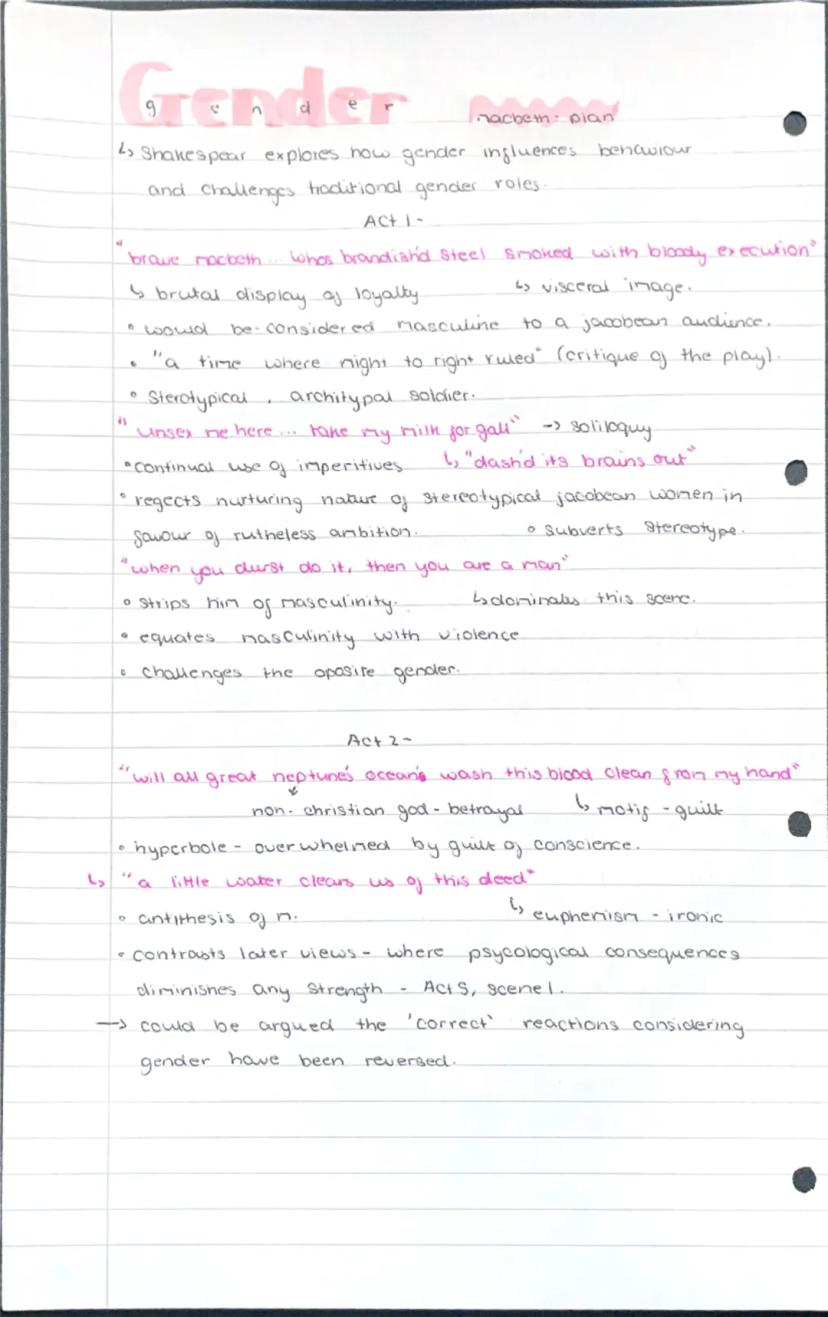 Gender
gender macbeth - plan
↳ Shakespear explores how gender influences behaviour
and challenges traditional gender roles.
Act 1 -
"brave macbeth... whos brandish'd steel smoked with bloody execution"
↳ brutal display of loyalty ↳ visceral image.
• would be considered masculine to a jacobean audience.
• "a time where might to right ruled" (critique of the play).
• Sterotypical, architypal soldier.
"unsex me here... take my milk for gall" → soliloquy
• continual use of imperitives ↳ "dash'd its brains out"
• regects nurturing nature of stereotypical jacobean women in
favour of rutheless ambition. • subverts stereotype.
"when you durst do it, then you are a man"
• strips him of masculinity. ↳ dominates this scene.
• equates masculinity with violence
• challenges the oposite gender.
Act 2 -
"will all great neptune's ocean's wash this blood clean from my hand"
non-christian god - betrayal ↳ motif - guilt
• hyperbole - overwhelmed by guilt of conscience.
↳ "a little water clears us of this deed"
• antithesis of m. ↳ euphemism - ironic
• contrasts later views - where psycological consequences
diminishes any strength - Act 5, scene 1.
→ could be argued the 'correct' reactions considering
gender have been reversed.